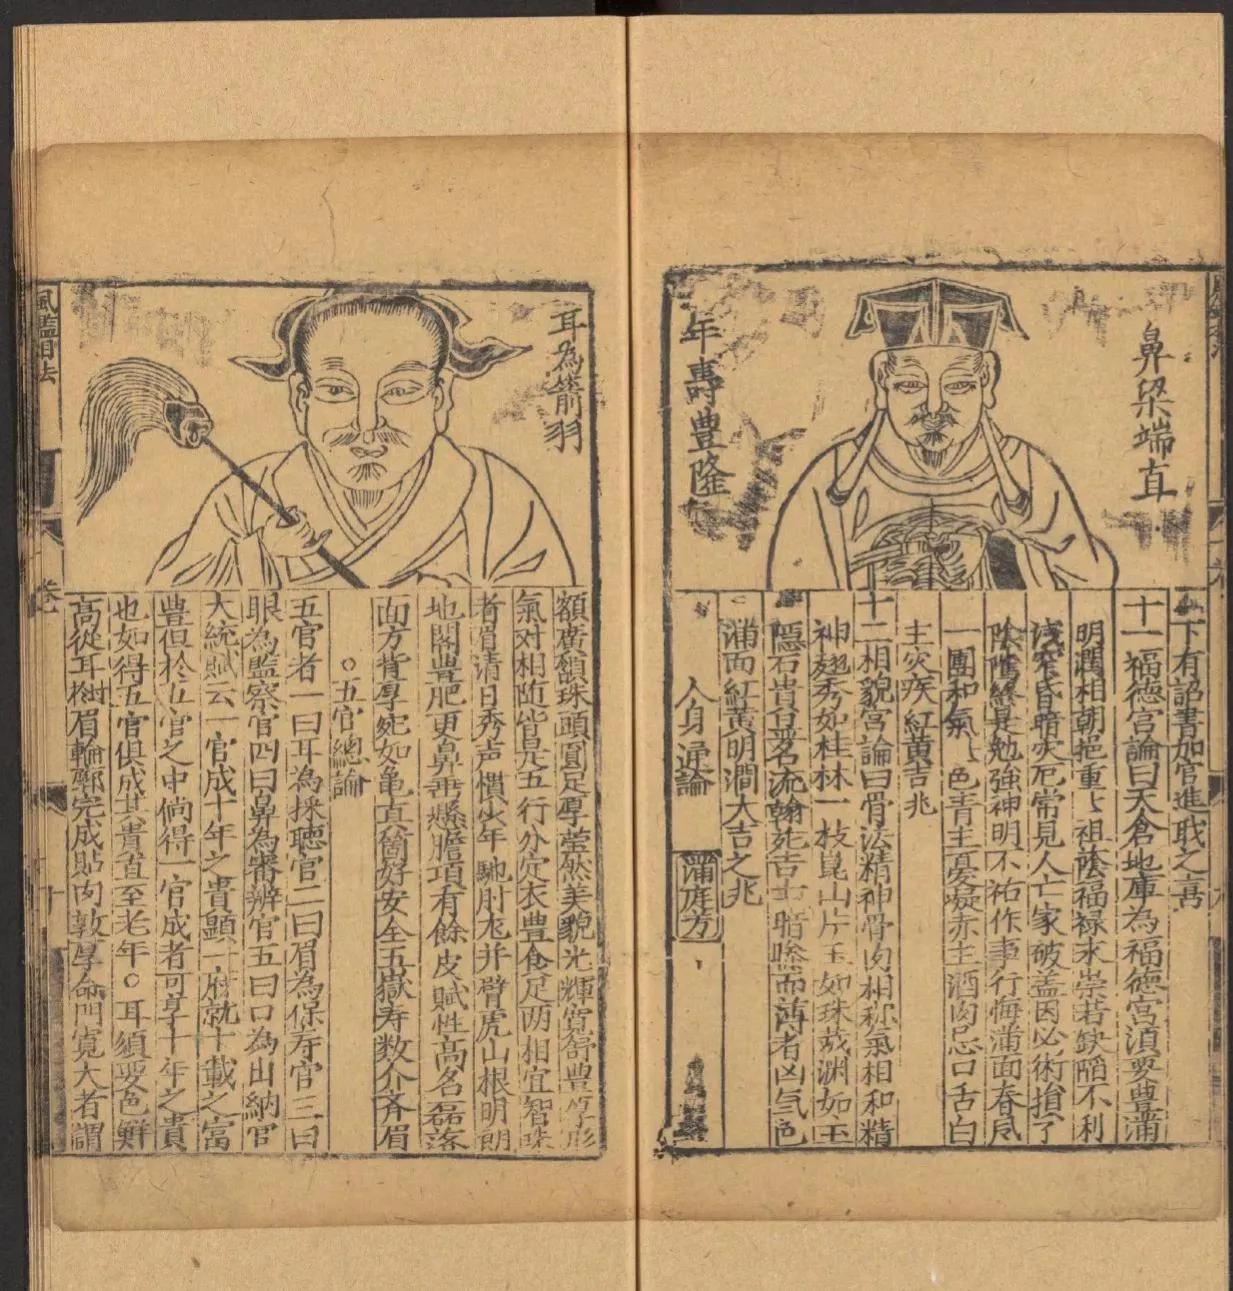 鼻梁端直
年壽豊隆
下有詔書如官進戢之喜
十一福德宫論曰天倉地庫為福德宫湏要豊滿
明潤相朝挹重〻祖陰福禄永崇若缺陷不利
淺窄昏暗灾厄常見人亡家破盖因心術損了
陰隲終是勉強神明不祐作事行悔滿面春風
一團和氣〻色青主憂疑赤主酒肉忌口舌白
主灾疾紅黄吉兆
十二相貌宫論曰骨法精神骨肉相称氣相和精
神𠃵秀如桂林一枝崑山片玉如珠𦰏淵如玉
隱石貴𠮷名流翰苑吉士暗慘而薄者凶氣色
滿而紅黄明潤大吉之兆
人身通論
滿庭芳
耳為箭羽
額廣頷珠頭圓足厚瑩然美貌光輝質舒豊厚形
氣对相随皆是五行分定衣豊食足两相宜智珠
者眉清目秀声慣少年馳肘尨并臂虎山根明朗
地閣豊肥更鼻垂懸膽項有餘皮賦性高名磊落
面方背厚宛如亀直筒好安全五嶽寿数介齐眉
○五官總論
五官者一曰耳為採聽官二曰眉為保寿官三曰
眼為監察官四曰鼻為審辨官五曰口為出納官
大統賦云一官成十年之貴顕一府就十載之富
豊但於五官之中倘得一官成者可享十年之貴
也如得五官俱成其貴直至老年○耳須要色鮮
高從耳𣗳眉輪郭完成貼肉敦厚命門寬大者謂
風鑑相法
卷一
十